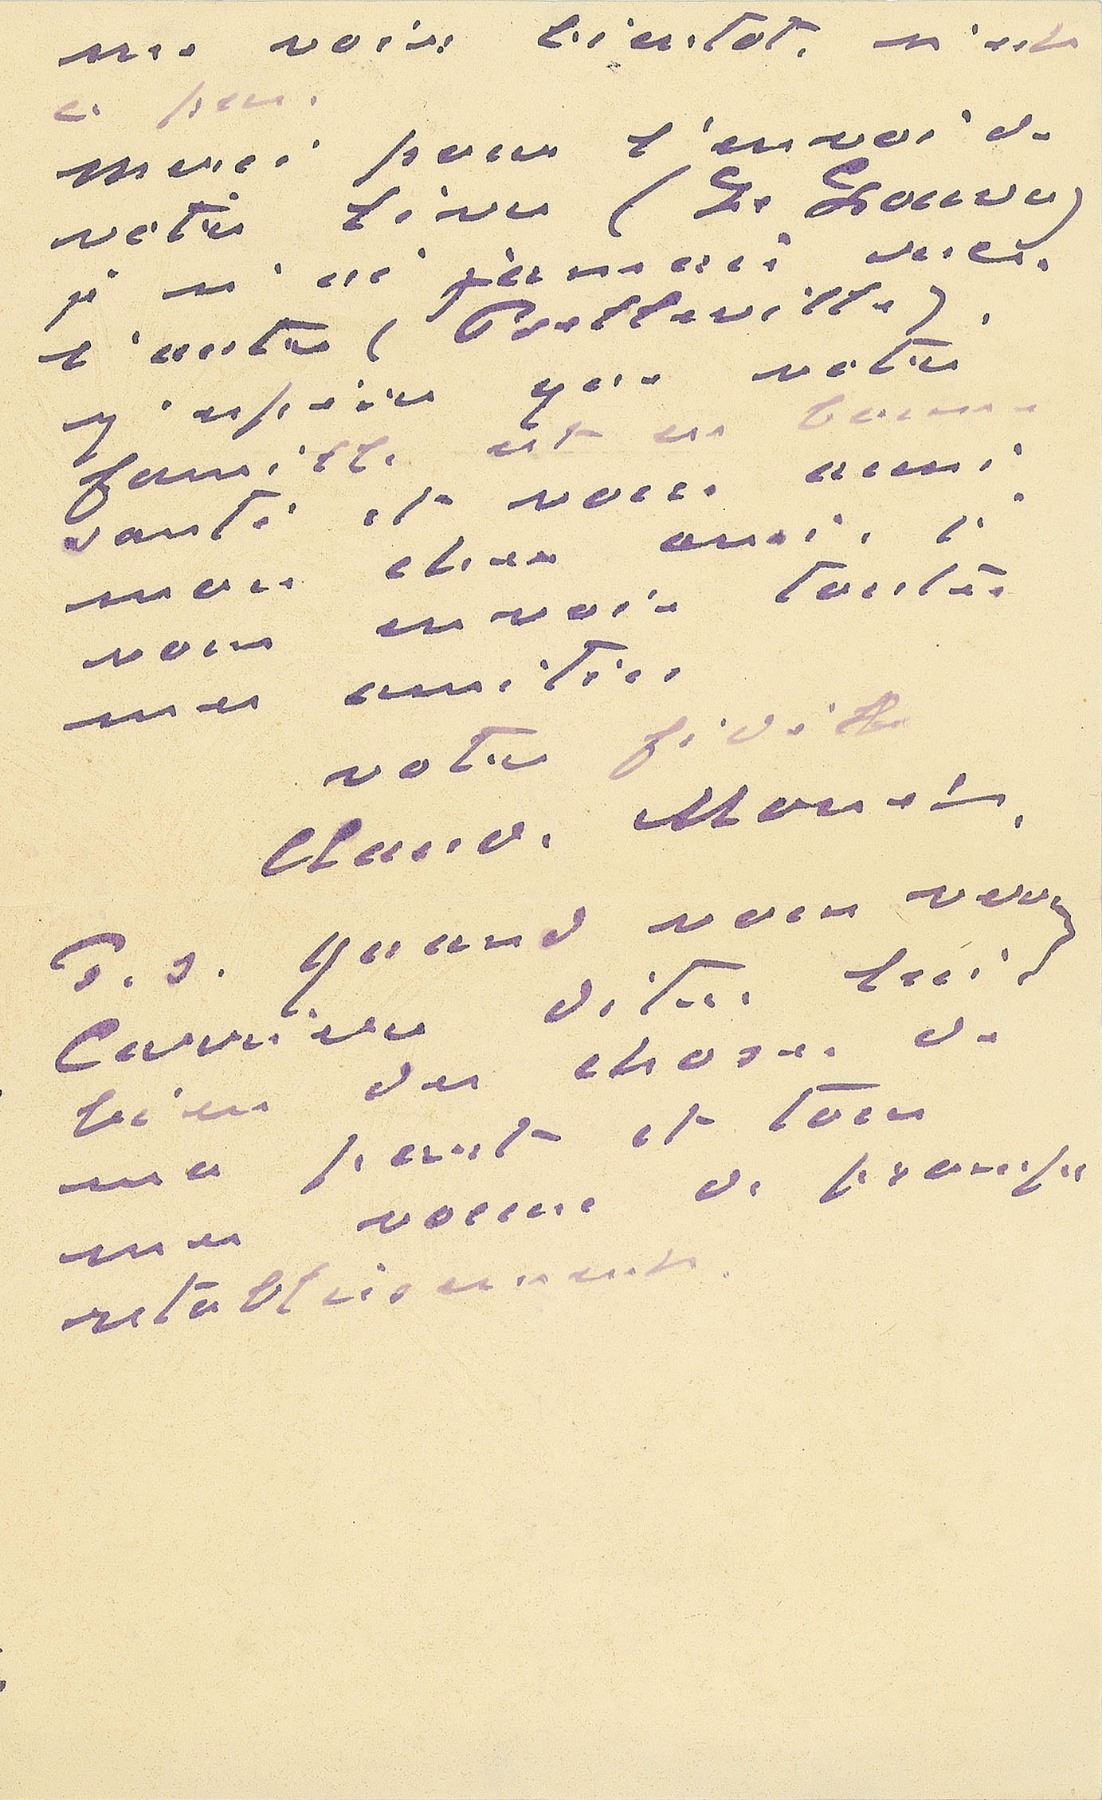 me voir bientôt, n'est
ce pas.
Merci pour l'envoi de
votre livre (Le Louvre)
je n'ai jamais reçu
l'autre
J'espère que votre
famille est en bonne
santé et vous aussi
mon cher ami, je
vous envoie toutes
mes amitiés
votre fidèle
Claude Monet.
P.S. Quand vous verrez
Clemenceau dites lui
bien des choses de
ma part et tous
mes voeux de prompt
rétablissement.